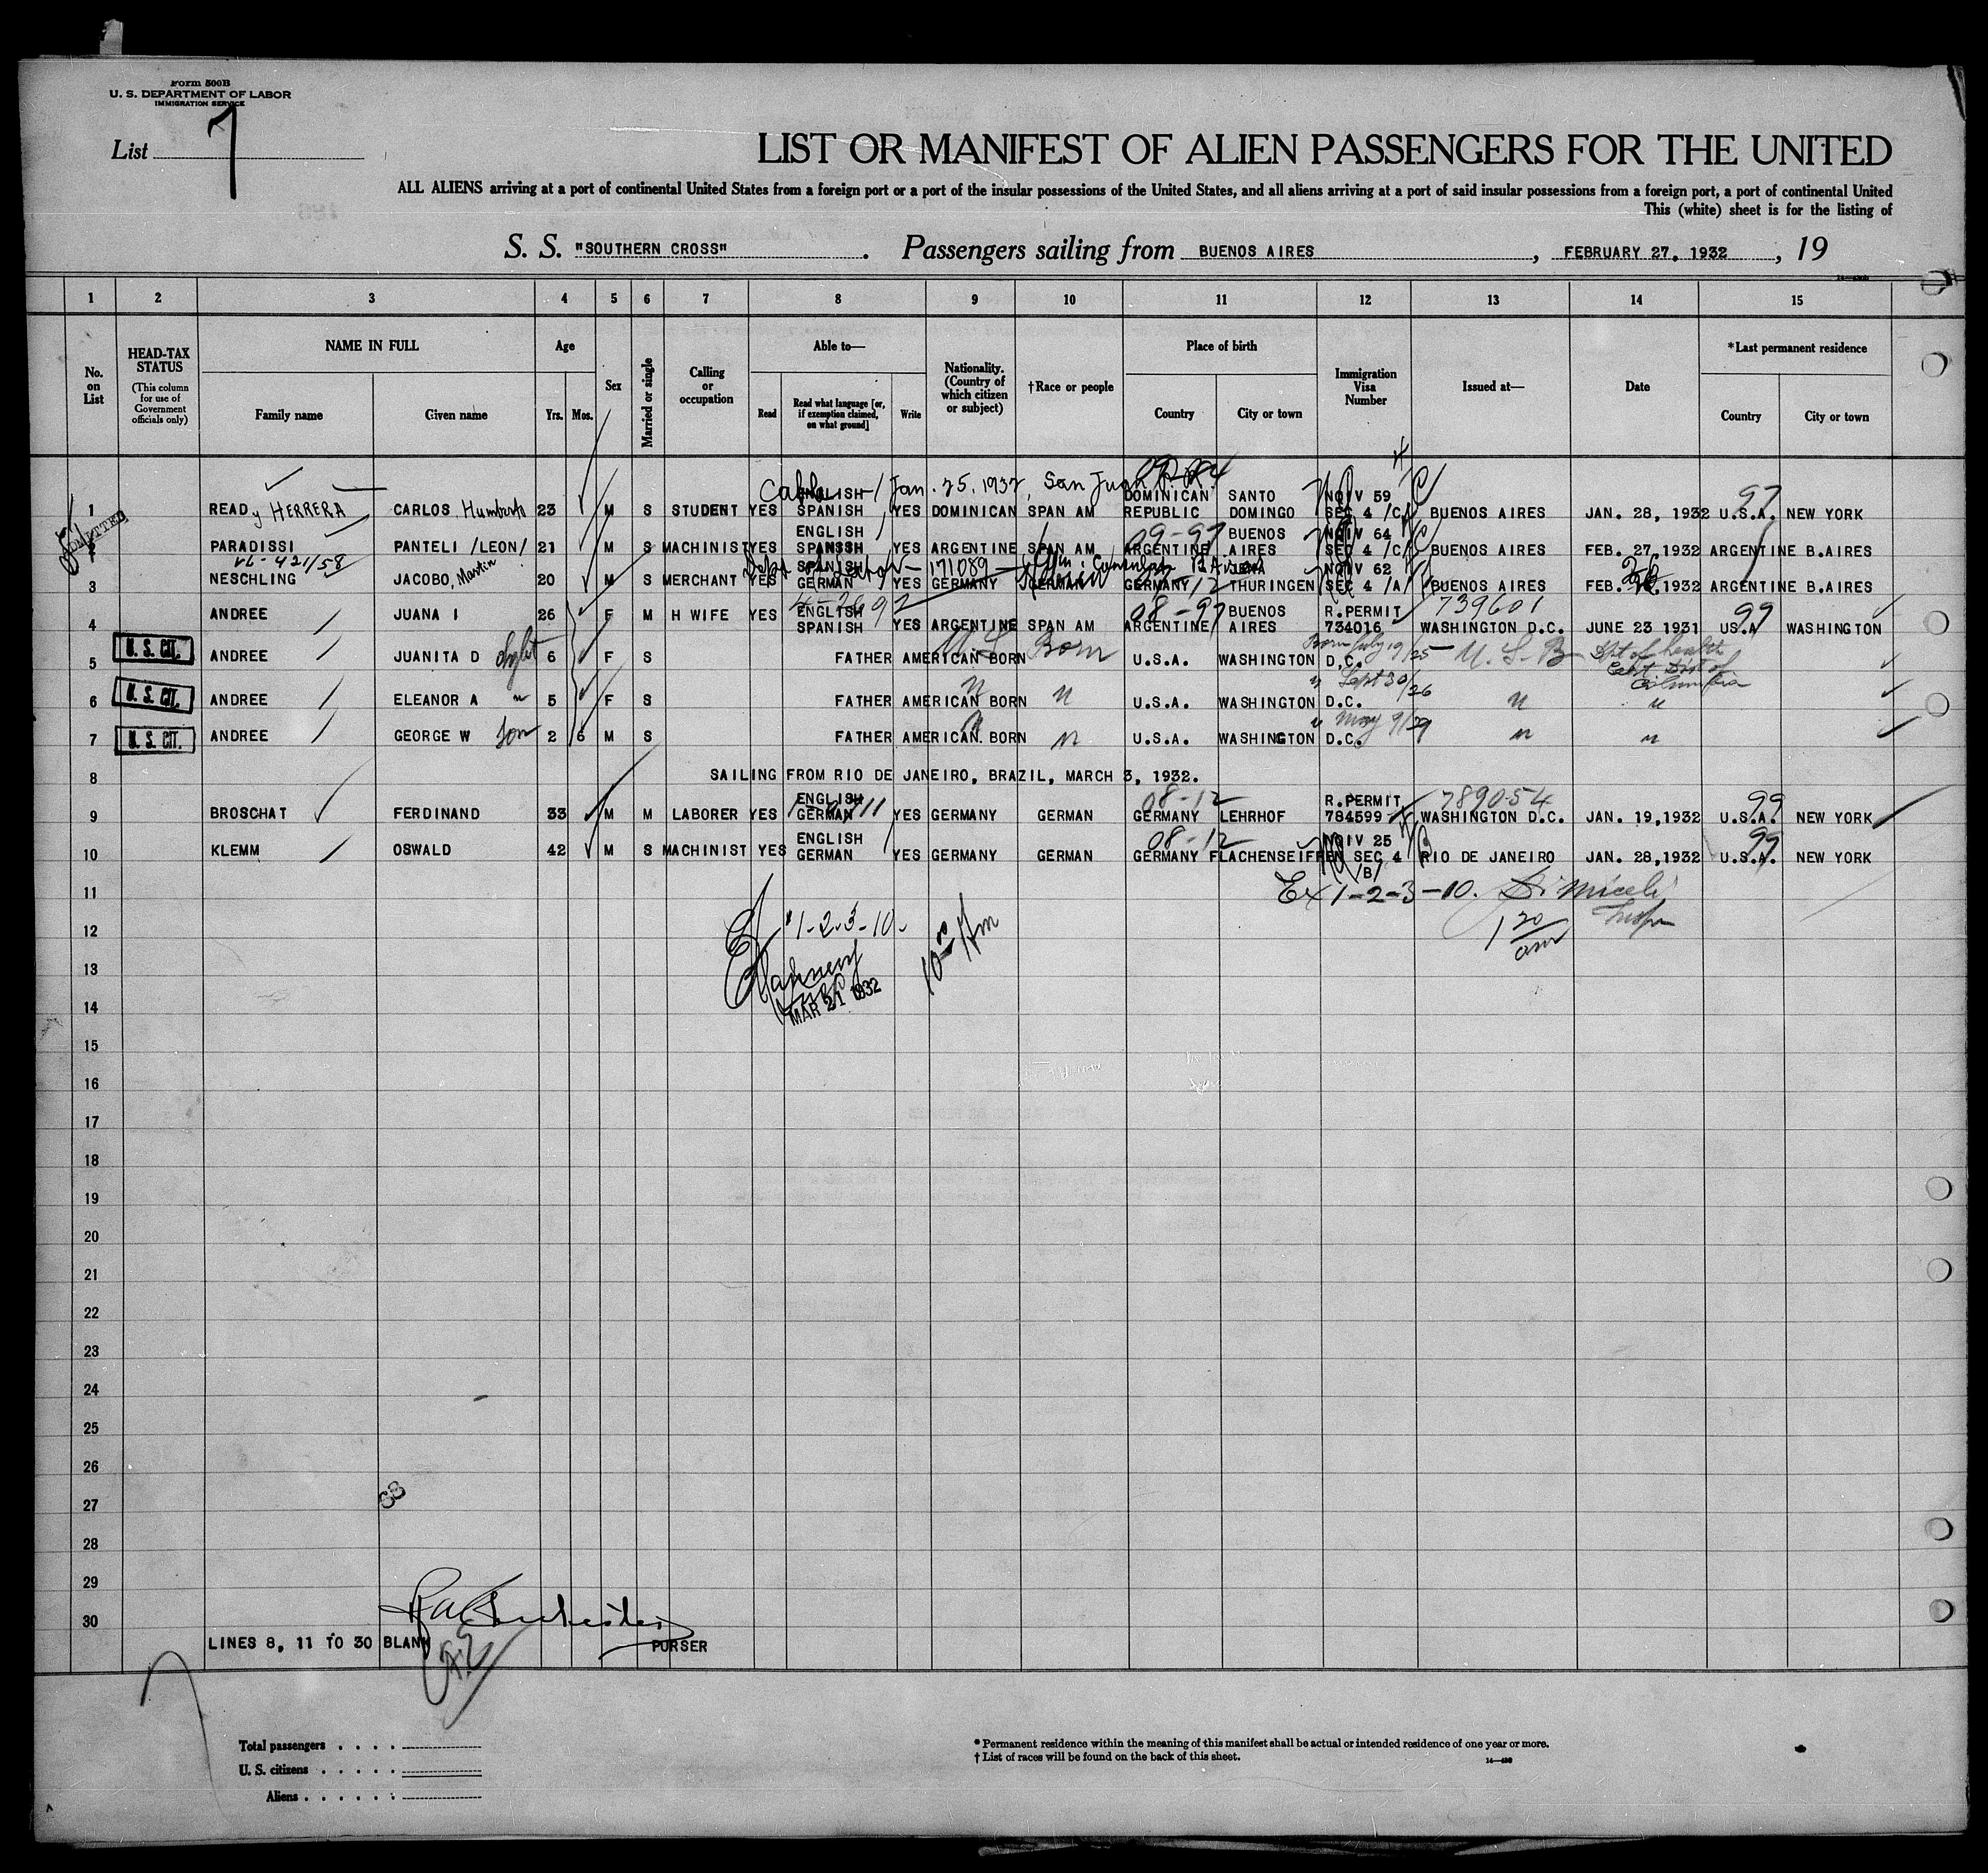 Form 500B
U. S. DEPARTMENT OF LABOR
IMMIGRATION SERVICE
List 7
LIST OR MANIFEST OF ALIEN PASSENGERS FOR THE UNITED
ALL ALIENS arriving at a port of continental United States from a foreign port or a port of the insular possessions of the United States, and all aliens arriving at a port of said insular possessions from a foreign port, a port of continental United
This (white) sheet is for the listing of
S. S. "SOUTHERN CROSS". Passengers sailing from BUENOS AIRES, FEBRUARY 27, 1932, 19
1 2 3 4 5 6 7 8 9 10 11 12 13 14 15
No. on List
HEAD-TAX STATUS
(This column for use of Government officials only)
NAME IN FULL
Family name Given name
Age
Yrs. Mos.
Sex
Married or single
Calling or occupation
Able to—
Read
Read what language [or, if exemption claimed, on what ground]
Write
Nationality. (Country of which citizen or subject)
†Race or people
Place of birth
Country City or town
Immigration Visa Number
Issued at—
Date
*Last permanent residence
Country City or town
ADMITTED
Jan. 25, 1932, San Juan
1 READ y HERRERA CARLOS Humberto 23 M S STUDENT YES ENGLISH SPANISH YES DOMINICAN SPAN AM DOMINICAN REPUBLIC SANTO DOMINGO NQIV 59 SEC 4 /C/ BUENOS AIRES JAN. 28, 1932 U.S.A. NEW YORK 97
09-97
2 PARADISSI PANTELI /LEON/ 21 M S MACHINIST YES ENGLISH SPANISH YES ARGENTINE SPAN AM ARGENTINE BUENOS AIRES NQIV 64 SEC 4 /C/ BUENOS AIRES FEB. 27,1932 ARGENTINE B.AIRES
VL-421/58
171089
3 NESCHLING JACOBO, Martin 20 M S MERCHANT YES SPANISH GERMAN YES GERMANY GERMAN GERMANY THURINGEN NQIV 62 SEC 4 /A/ BUENOS AIRES FEB. 1932 ARGENTINE B.AIRES
08-97 739601 99
4 ANDREE JUANA I 26 F M H WIFE YES ENGLISH SPANISH YES ARGENTINE SPAN AM ARGENTINE BUENOS AIRES R.PERMIT 734016 WASHINGTON D.C. JUNE 23 1931 USA WASHINGTON
U. S. CIT.
5 ANDREE JUANITA D 6 F S FATHER AMERICAN BORN U.S.A. WASHINGTON D.C. Born July 19/25 U.S.B. Dpt of health
U. S. Born
U. S. CIT.
6 ANDREE ELEANOR A " 5 F S FATHER AMERICAN BORN " U.S.A. WASHINGTON D.C. " Sept 30/26 " "
U. S. CIT.
7 ANDREE GEORGE W Son 2 6 M S FATHER AMERICAN BORN " U.S.A. WASHINGTON D.C. " May 9/29 " "
8 SAILING FROM RIO DE JANEIRO, BRAZIL, MARCH 3, 1932.
08-12 789054 99
9 BROSCHAT FERDINAND 33 M M LABORER YES ENGLISH GERMAN YES GERMANY GERMAN GERMANY LEHRHOF R.PERMIT 784599 WASHINGTON D.C. JAN. 19,1932 U.S.A. NEW YORK
08-12 99
10 KLEMM OSWALD 42 M S MACHINIST YES ENGLISH GERMAN YES GERMANY GERMAN GERMANY FLACHENSEIFFEN NQIV 25 SEC 4 /B/ RIO DE JANEIRO JAN. 28,1932 U.S.A. NEW YORK
11 Ex 1-2-3-10.
12 Ex 1-2-3-10.
13
14 MAR 21 1932
15
16
17
18
19
20
21
22
23
24
25
26
27
28
29
30
LINES 8, 11 TO 30 BLANK
PURSER
Total passengers
U. S. citizens
Aliens
* Permanent residence within the meaning of this manifest shall be actual or intended residence of one year or more.
† List of races will be found on the back of this sheet.